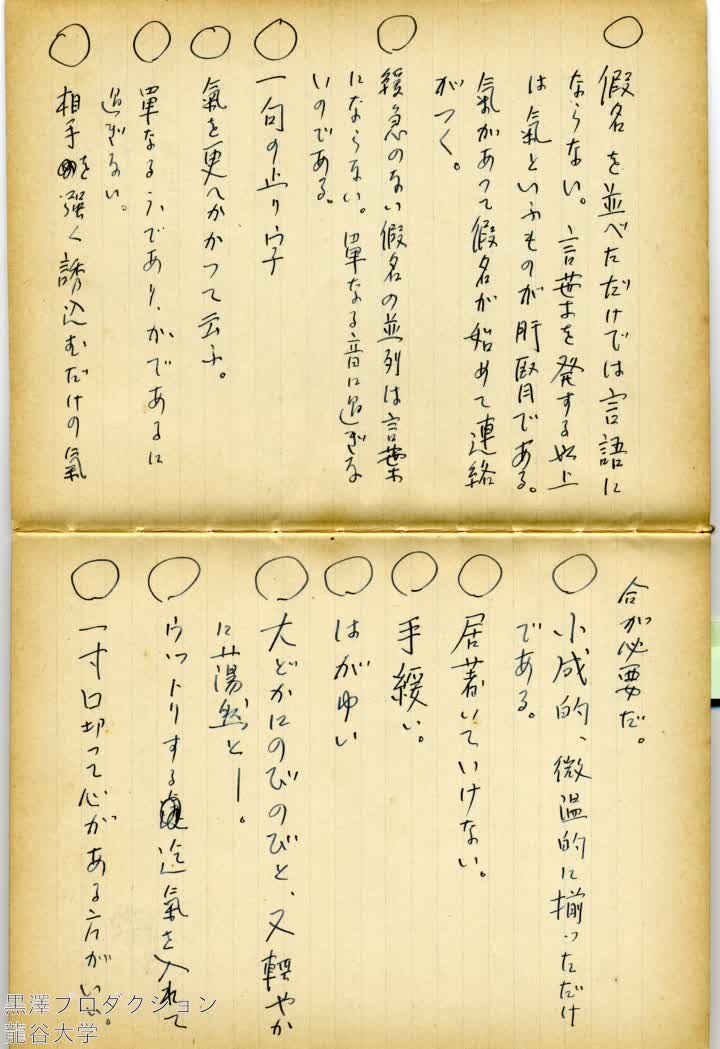 ○假名を並べただけでは言語に
ならない。言葉を発する以上
は氣といふものが肝腎である。
氣があつて假名が始めて連絡
がつく。
○緩急のない假名の並列は言葉
にならない。単なる音に過ぎな
いのである。
○一句の止り字
○氣を更へかかつて云ふ。
○単なるふであり、かであるに
過ぎない。
○相手を強く誘込むだけの氣
合が必要だ。
○小成的、微温的に揃っただけ
である。
○居着いていけない。
○手緩い。
○はがゆい
○大どかにのびのびと、又軽やか
に蕩然とー。
○ウットリする迄氣を入れて
○一寸口切って心がある方がいゝ。
黒澤プロダクション
龍谷大学